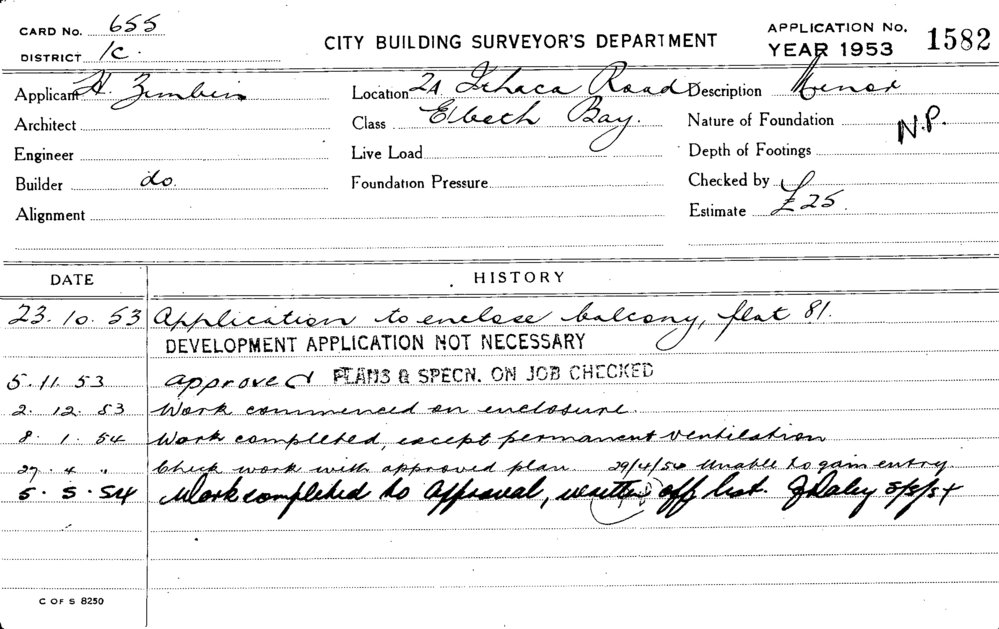 CARD No. 655
DISTRICT 1C.
CITY BUILDING SURVEYOR'S DEPARTMENT
APPLICATION No. 1582
YEAR 1953
Applicant H. Location 2A Ithaca Road Description Minor
Architect Class Elbeth Bay. Nature of Foundation N.P.
Engineer Live Load Depth of Footings
Builder do. Foundation Pressure Checked by
Alignment Estimate £25.
DATE HISTORY
23.10.53 Application to enclose balcony, flat 81.
DEVELOPMENT APPLICATION NOT NECESSARY
5.11.53 approved PLANS & SPECN. ON JOB CHECKED
2.12.53 Work commenced on enclosure.
8.1.54 Work completed, except permanent ventilation
27.4 " Check work with approved plan. 29/4/54 Unable to gain entry.
5.5.54 Work completed to approval, written off list. J Daley 5/5/54
C OF S 8250